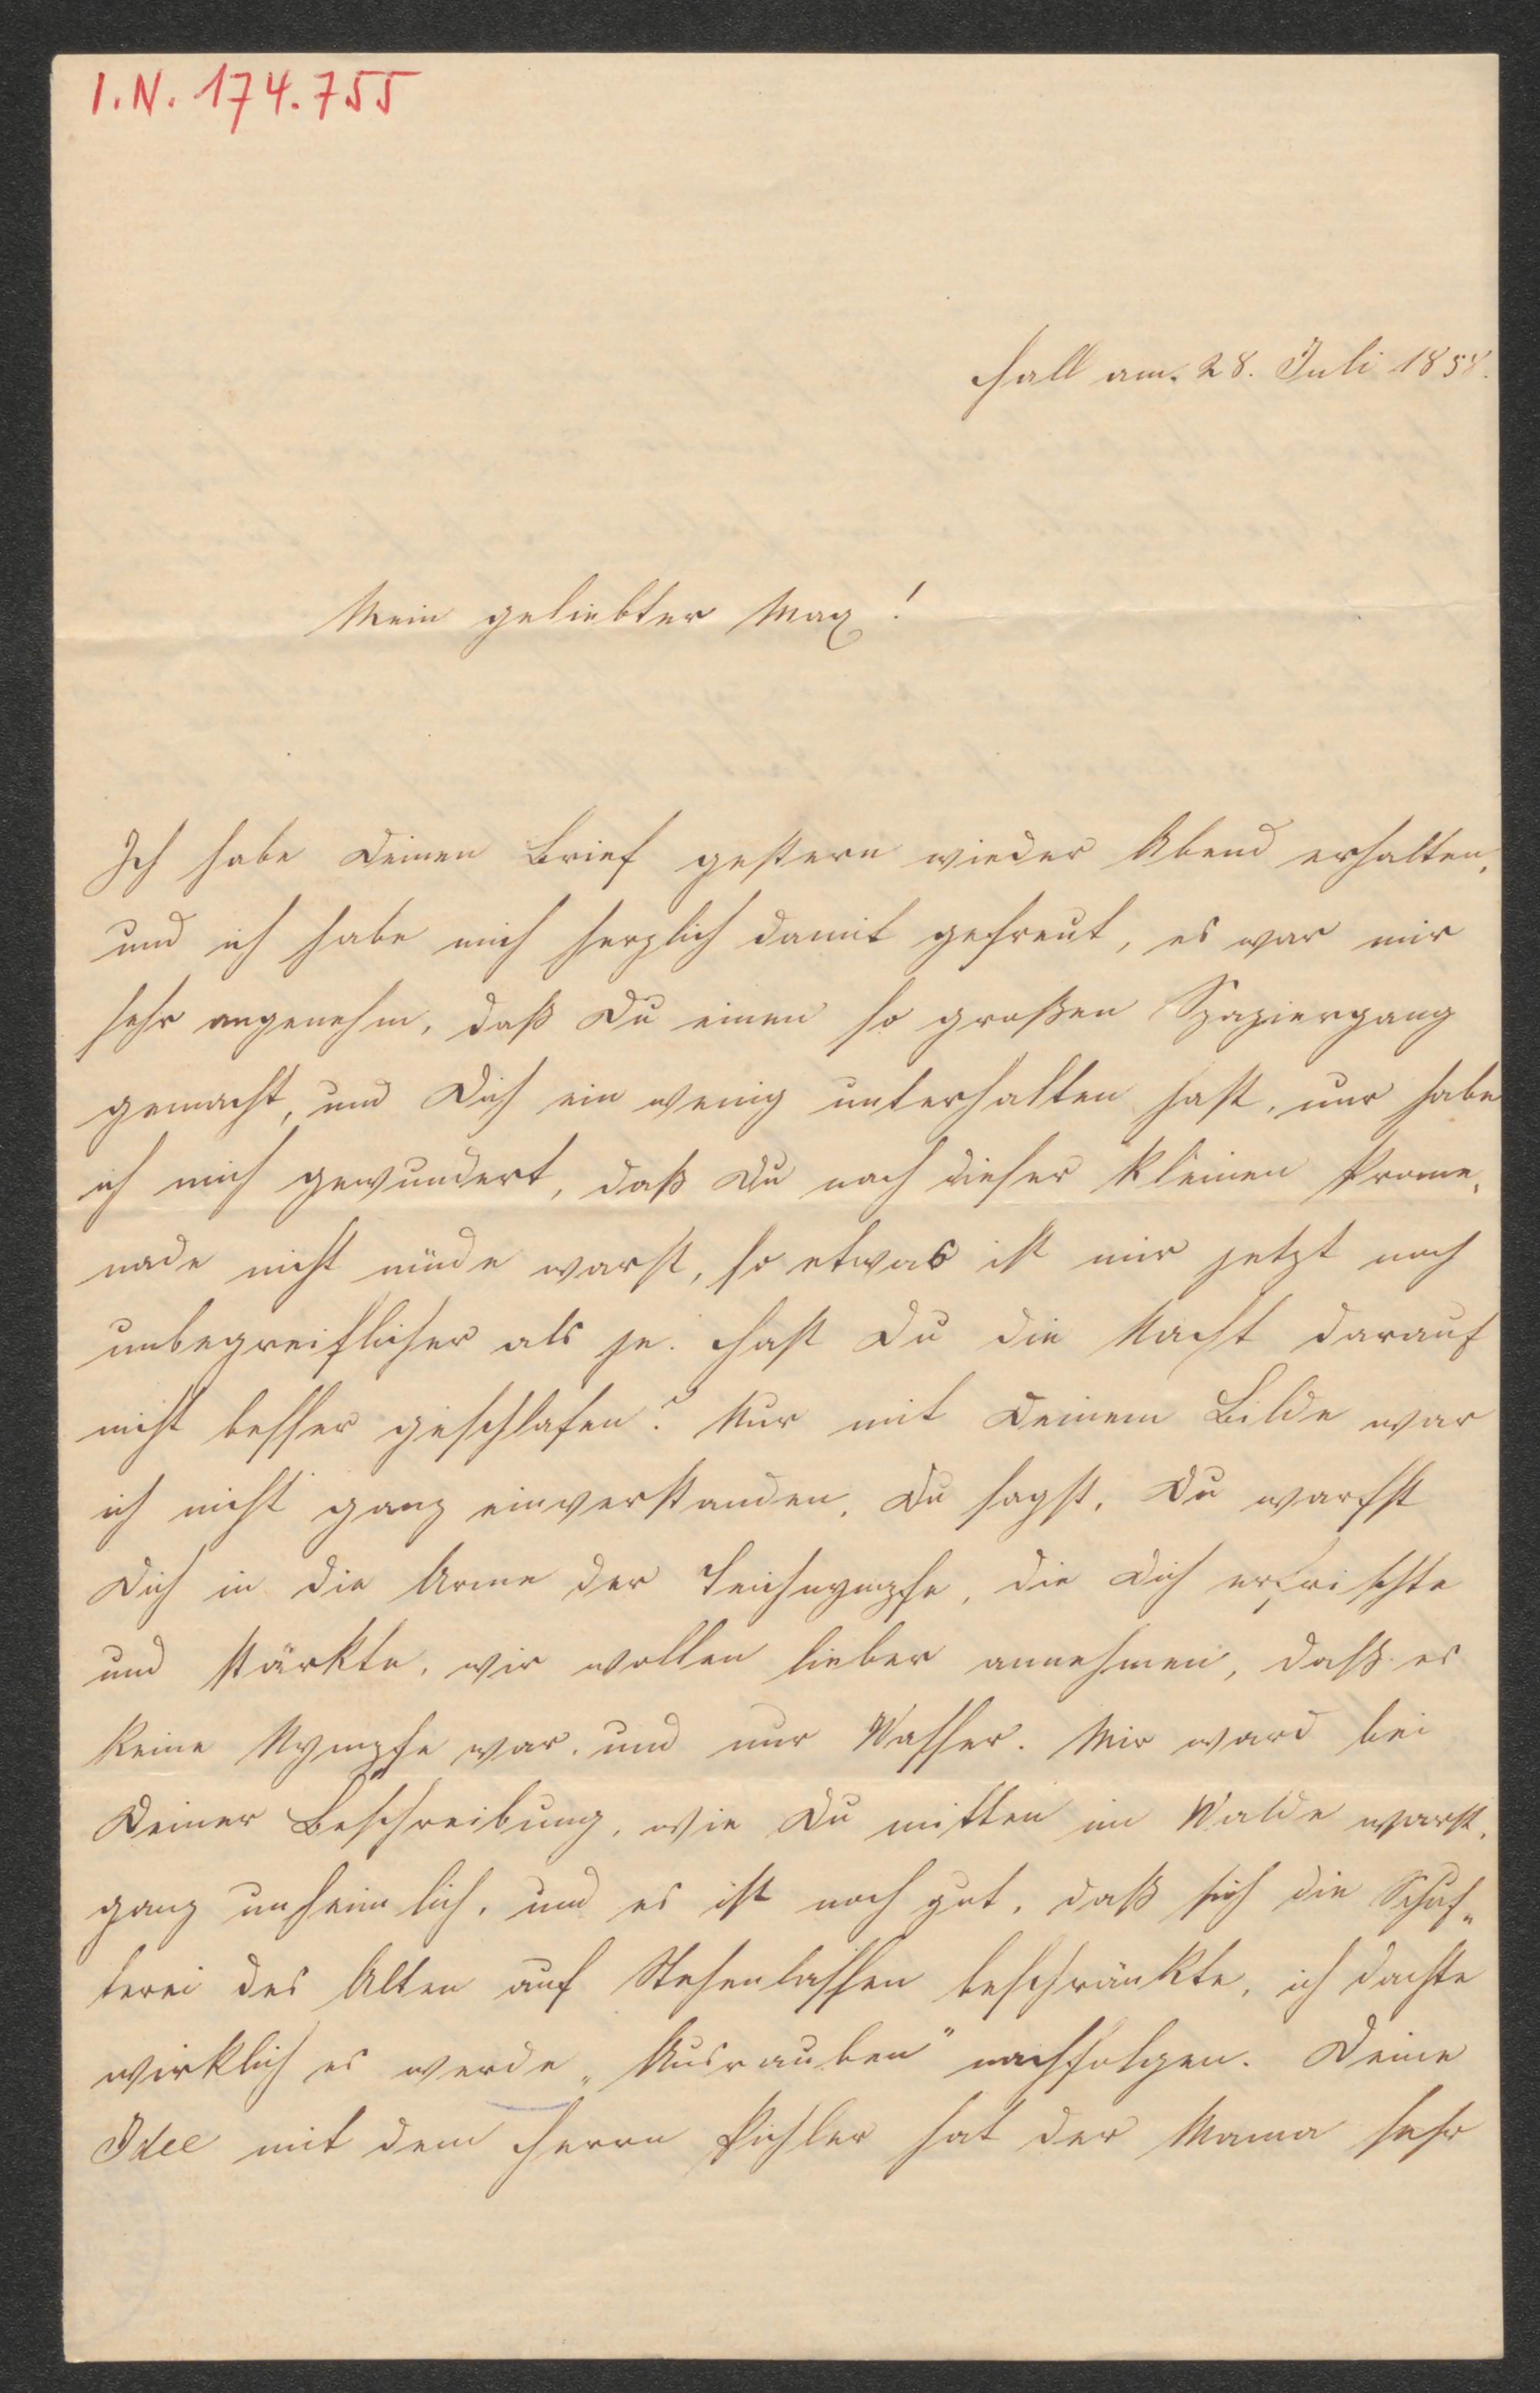 I.N. 174.755
Hall am. 28. Juli 1858.
Mein geliebter Max!
Ich habe Deinen Brief gestern wieder Abend erhalten,
und ich habe mich herzlich damit gefreut, es war mir
sehr angenehm, daß Du einen so großen Spaziergang
gemacht, und Dich ein wenig unterhalten hast, nur habe
ich mich gewundert, daß Du nach dieser kleinen Prome„
nade nicht müde warst, so etwas ist mir jetzt noch
unbegreiflicher als je. Hast Du die Nacht darauf
nicht besser geschlafen? Nur mit Deinem Bilde war
ich nicht ganz einverstanden. Du sagst, Du warfst
Dich in die Arme der Teichnympfe, die Dich erfrischte
und stärkte, wir wollen lieber annehmen, daß es
keine Nympfe war, und nur Wasser. Mir ward bei
Deiner Beschreibung, wie Du mitten im Walde warst,
ganz unheimlich, und es ist noch gut, daß sich die Schuf„
terei des Alten auf Stehenlassen beschränkte, ich dachte
wirklich es werde „Ausrauben" nachfolgen. Deine
Idee mit dem Herrn Pichler hat der Mama sehr